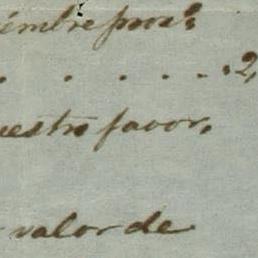 iembre prox.º
. . . . . . 2,
uestro favor.
valor de